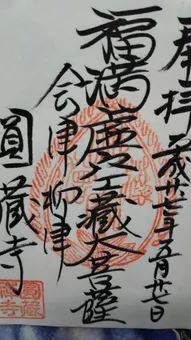 奉拝
平成廿七年五月廿七日
福満虚空藏大菩薩
会津柳津
圓藏寺